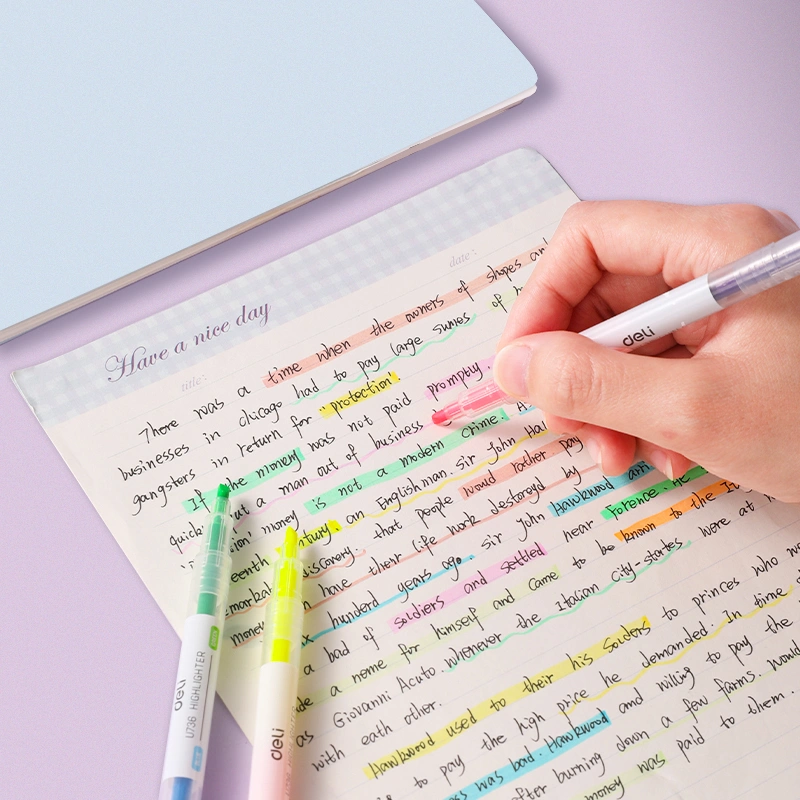 Have a nice day
title:
date:
There was a time when the owners of shops and
businesses in chicago had to pay large sums of
gangsters in return for "protection"
If the money was not paid promptly.
quick a man out of business
money is not a modern crime.
century, an Englishman. sir John
discovery. that people would rather pay
have their life work destoroyd by
hunderd years ago. sir John Hawkwood
a bad of soldiers and settled near Forence He
a name for himself and came to be known to the
as Giovanni Acuto whenever the Italian city-states were at
with eath other.
Hawkwood used to their his Solders to princes who
to pay the high price he demanded. In time
was bad. Hawkwood and wiling to pay the
after burning down a few farms. would
money was paid to them.
deli
deli
U736 HIGHLIGHTER
deli